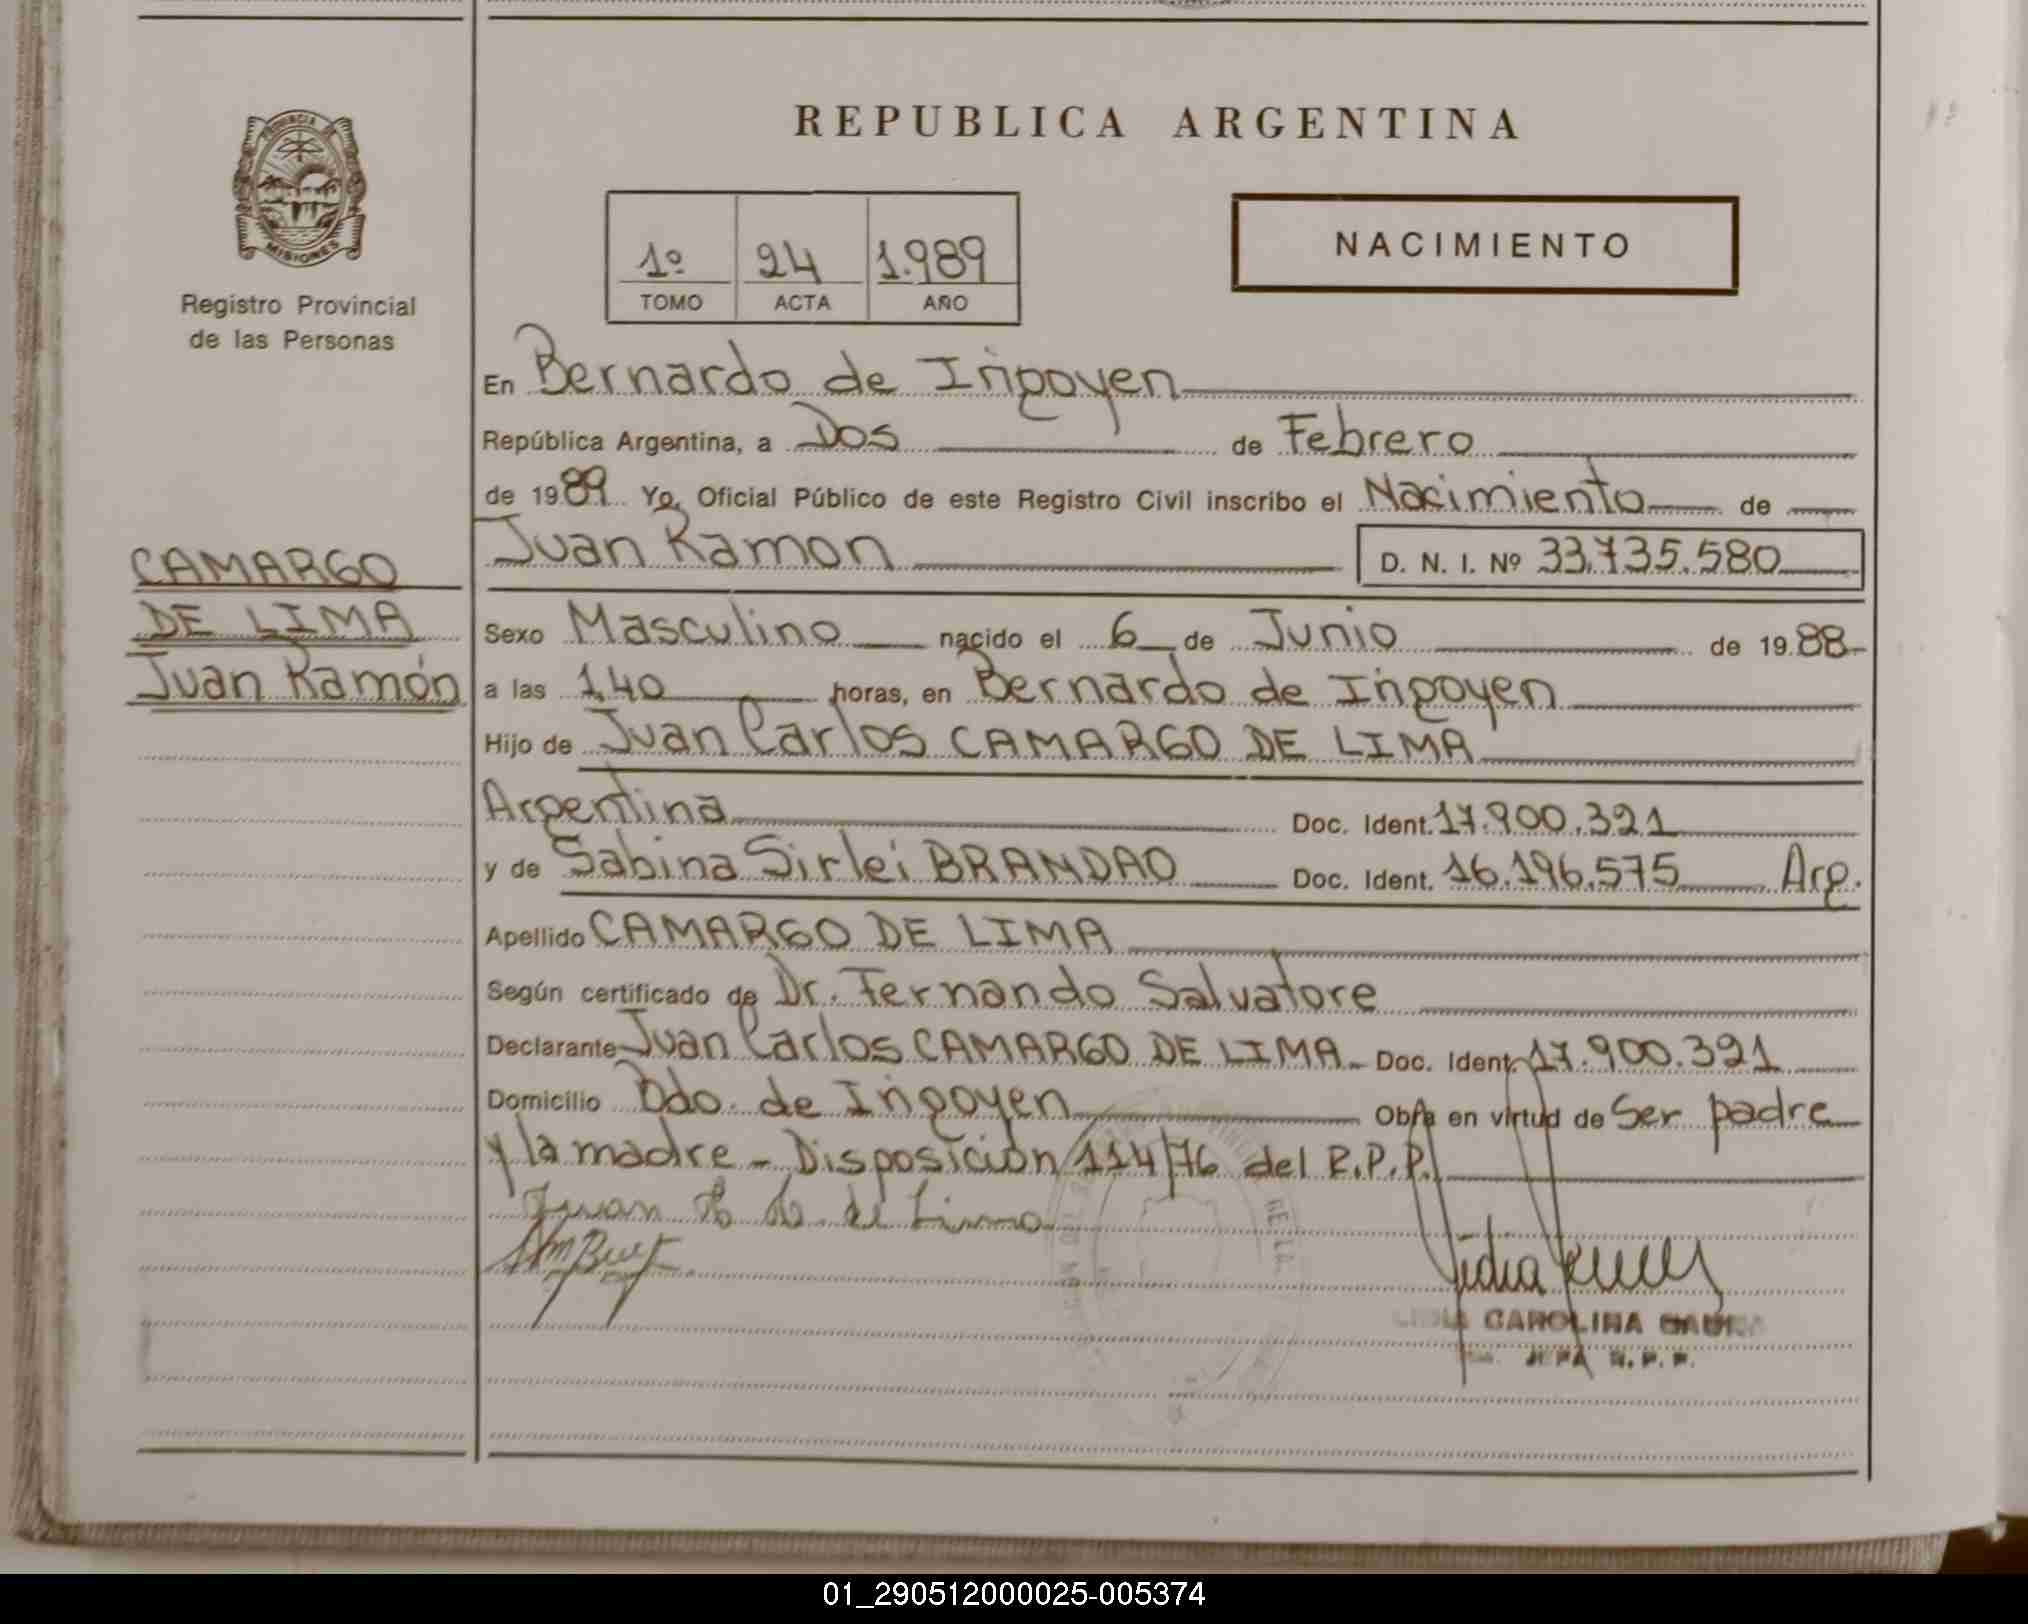 REPUBLICA ARGENTINA
PROVINCIA DE
MISIONES
Registro Provincial
de las Personas
1º 24 1.989
TOMO ACTA AÑO
NACIMIENTO
En Bernardo de Irigoyen
República Argentina, a Dos de Febrero
de 1989 Yo, Oficial Público de este Registro Civil inscribo el Nacimiento de
Juan Ramon D. N. I. Nº 33.735.580
CAMARGO
DE LIMA
Juan Ramón
Sexo Masculino nacido el 6 de Junio de 1988
a las 1,40 horas, en Bernardo de Irigoyen
Hijo de Juan Carlos CAMARGO DE LIMA
Argentina Doc. Ident. 17.900.321
y de Sabina Sirlei BRANDAO Doc. Ident. 16.196.575 Arg.
Apellido CAMARGO DE LIMA
Según certificado de Dr. Fernando Salvatore
Declarante Juan Carlos CAMARGO DE LIMA Doc. Ident. 17.900.321
Domicilio Bdo. de Irigoyen Obra en virtud de Ser padre
y la madre - Disposición 114/76 del R.P.P.
Juan de Lima
LIDIA CAROLINA
JEFA R.P.P.
01_290512000025-005374